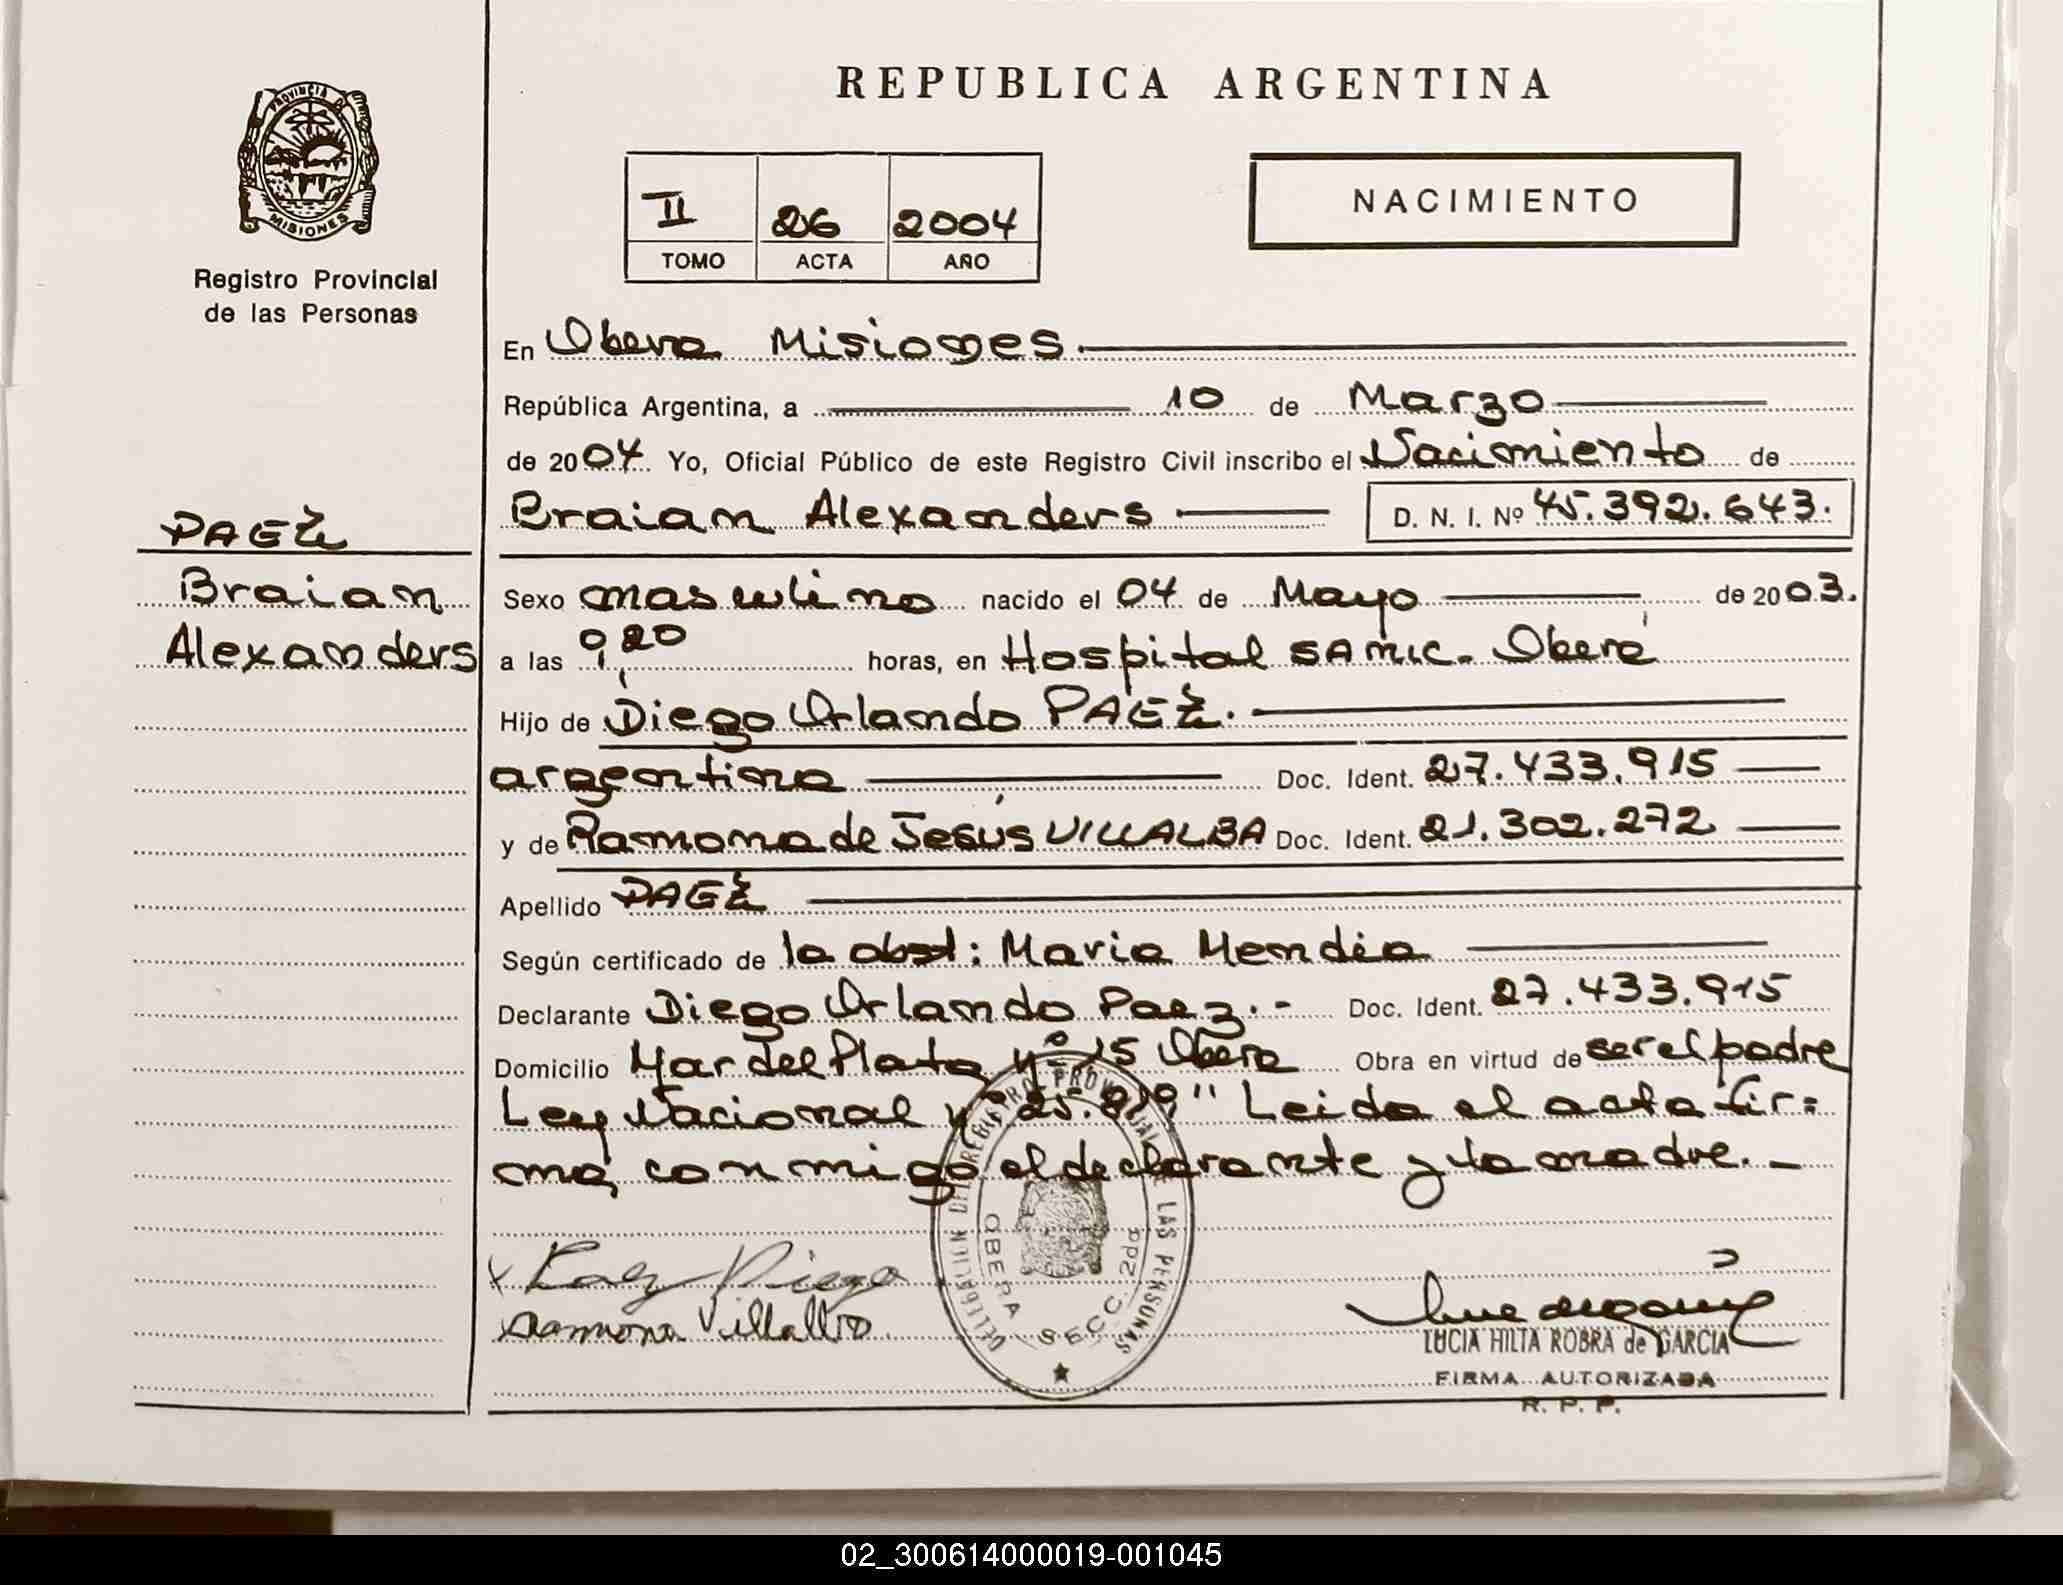 REPUBLICA ARGENTINA
PROVINCIA DE
MISIONES
Registro Provincial
de las Personas
II 26 2004
TOMO ACTA AÑO
NACIMIENTO
En Obera Misiones
República Argentina, a 10 de Marzo
de 2004 Yo, Oficial Público de este Registro Civil inscribo el Nacimiento de
Braian Alexanders D. N. I. Nº 45.392.643.
PAEZ
Braian
Alexanders
Sexo masculino nacido el 04 de Mayo de 2003.
a las 9,20 horas, en Hospital SAMIC. Oberá
Hijo de Diego Orlando PAEZ.
argentino Doc. Ident. 27.433.915
y de Ramona de Jesús VILLALBA Doc. Ident. 21.302.272
Apellido PAEZ
Según certificado de la obst: Maria Mendia
Declarante Diego Orlando Paez.- Doc. Ident. 27.433.915
Domicilio Mar del Plata Nº 15 Obera Obra en virtud de ser el padre
Ley Nacional Nº 25.819" Leida el acta fir=
ma, conmigo el declarante y la madre.-
DELEGACION DEL REGISTRO PROVINCIAL DE LAS PERSONAS
OBERA SECC. 2da
x Paez Diego
Ramona Villalba
LUCIA HILTA ROBRA de GARCIA
FIRMA AUTORIZADA
R. P. P.
02_300614000019-001045